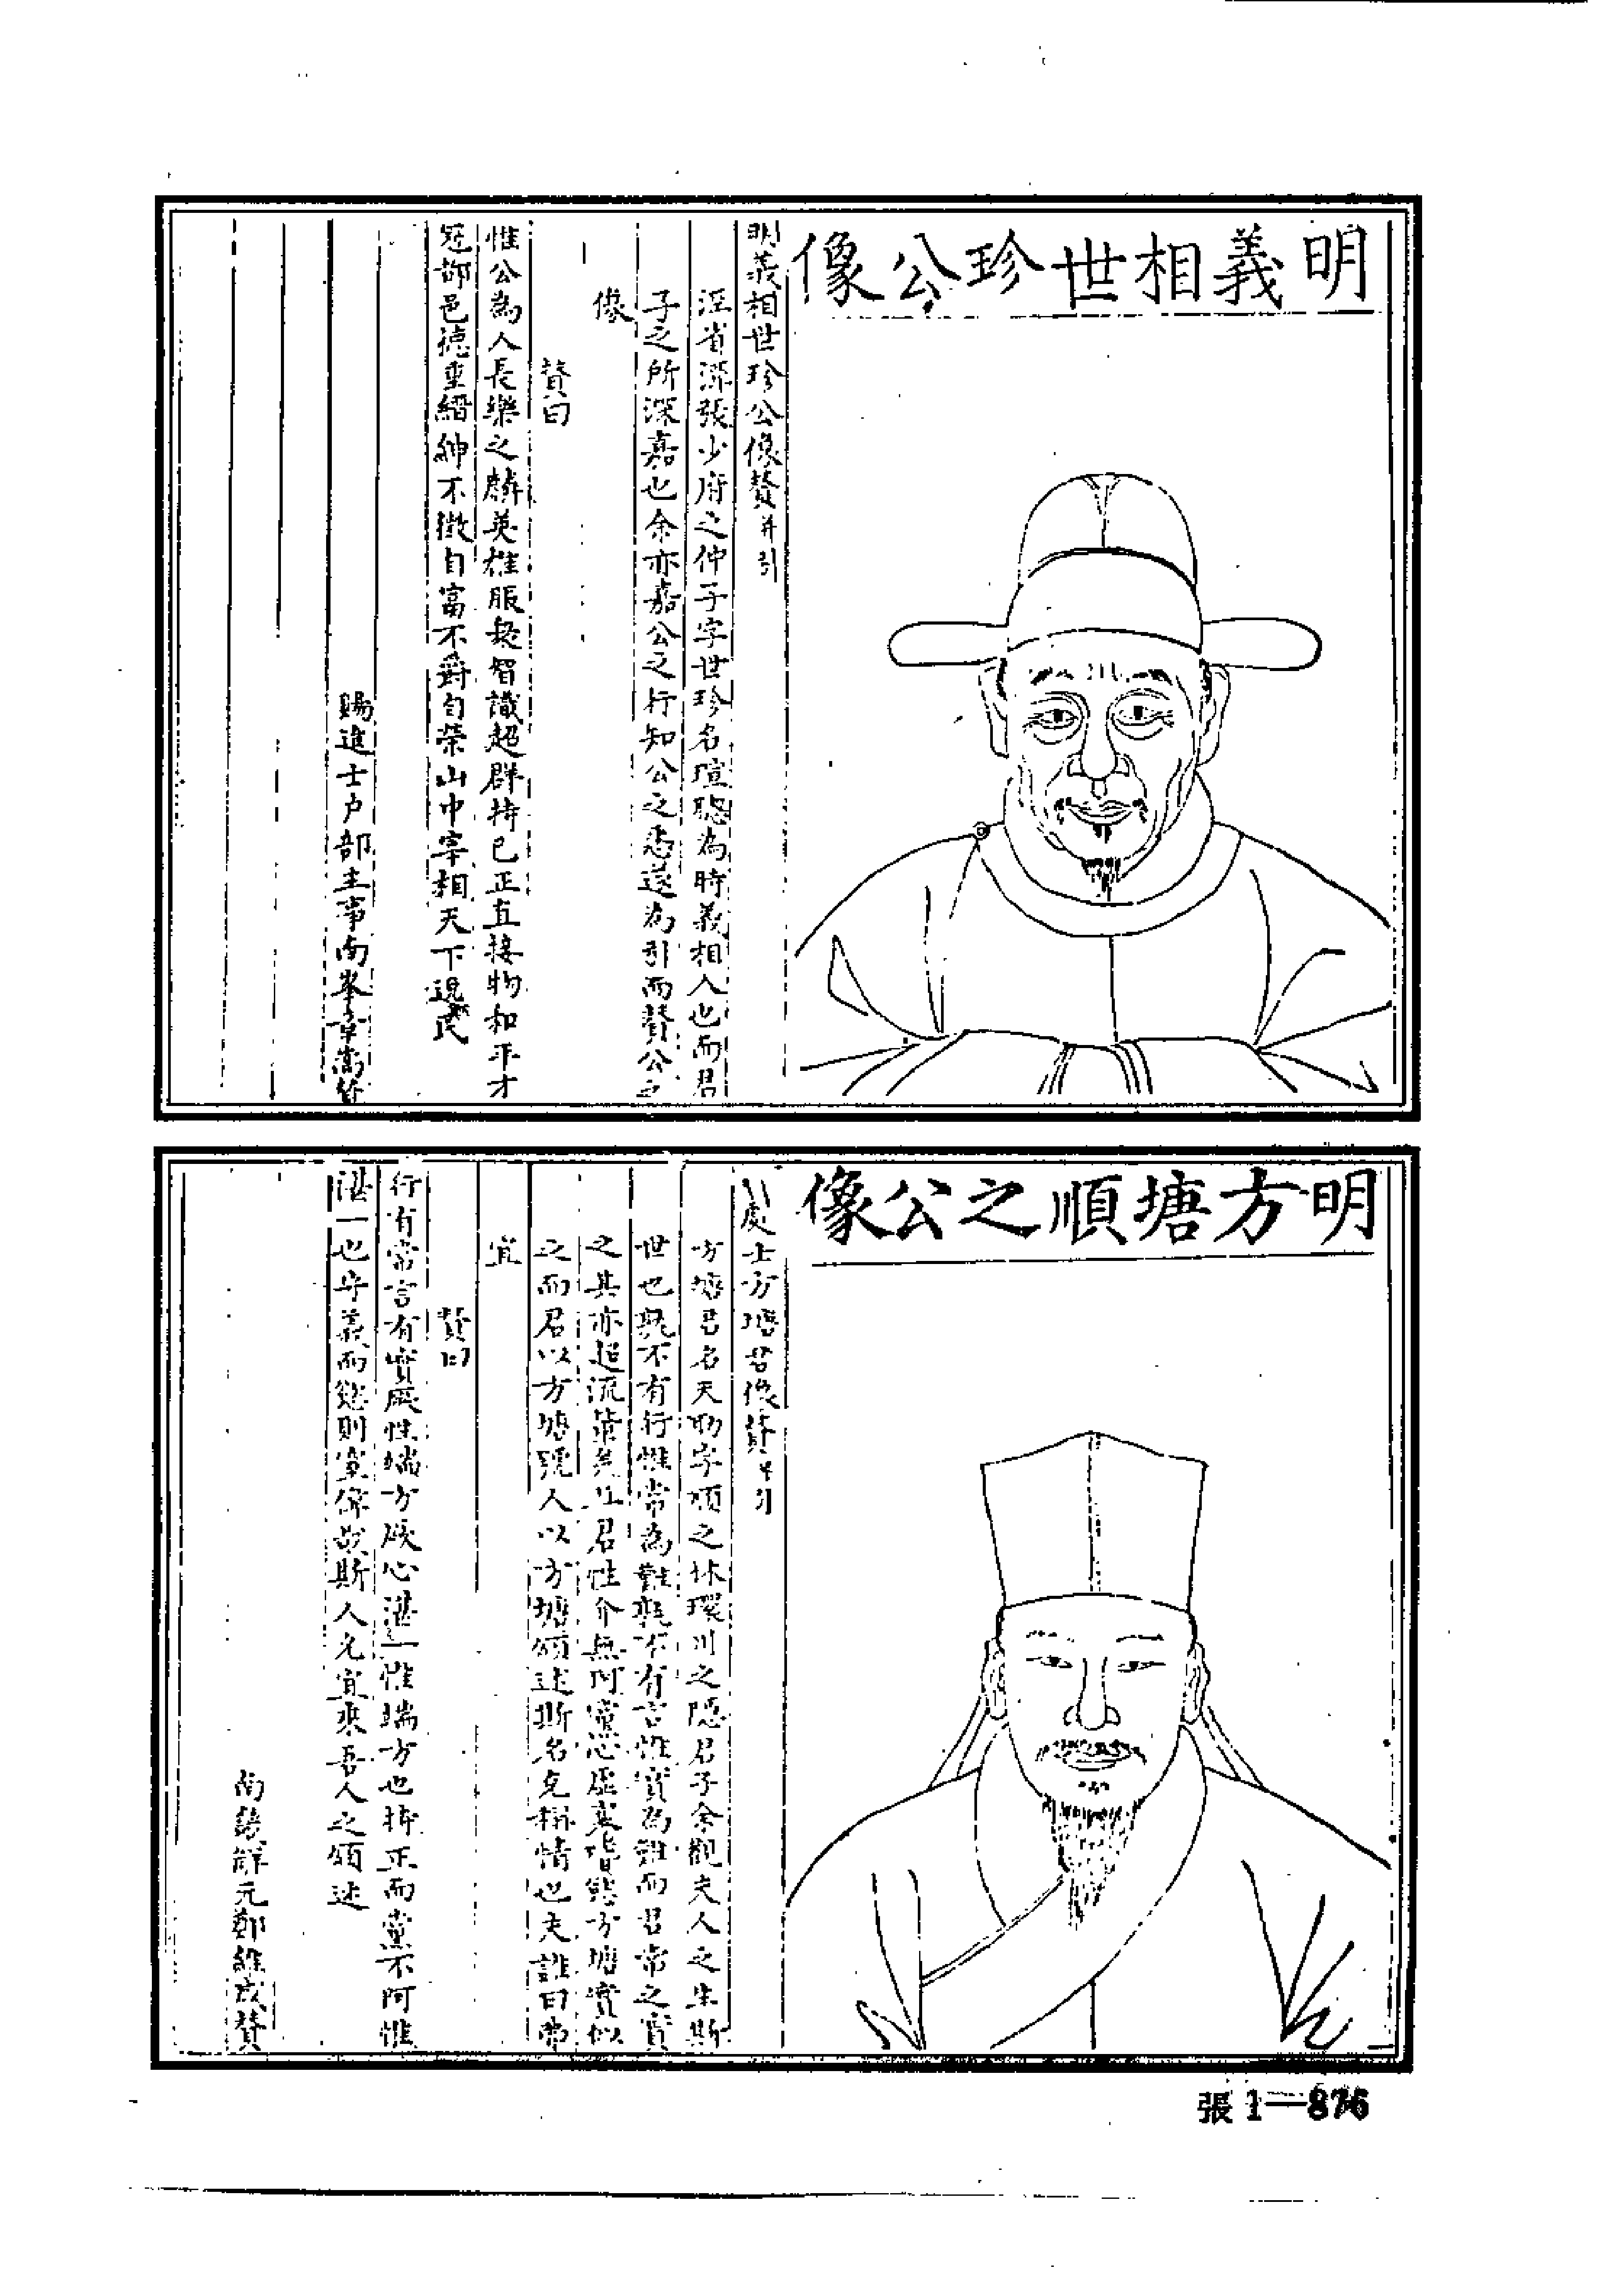 明義相世珍公像
明義相世珍公像賛并引
深張少府之仲子字世珍名瑄聰為時義相人也而君
子之所深嘉也余亦嘉公之行知公之悉遂為引而賛公之
像
賛曰
惟公為人長樂之麟英雄服衆智識超群持已正直接物和平才
冠郡邑德重縉紳不徵自富不爵自榮山中宰相天下逸民
賜進士户部主事南峯章嵩
明方塘順之公像
處士方塘君像賛并引
方塘君名天助字順之林環川之隠君子余觀夫人之生斯
世也孰不有行惟常為難孰不有言惟實為難而君常之實
之其亦超流輩矣且君性介無阿黨心虛寡方塘實似
之而君以方塘號人以方塘頌述斯名克稱情也夫誰曰弗
宜
賛曰
行有常言有實厥性端方厥心湛一惟端方也持正而黨不阿惟
湛一也守義而慾則窒偉哉斯人允宜來吾人之頌述
解元鄭維賛
張1—876